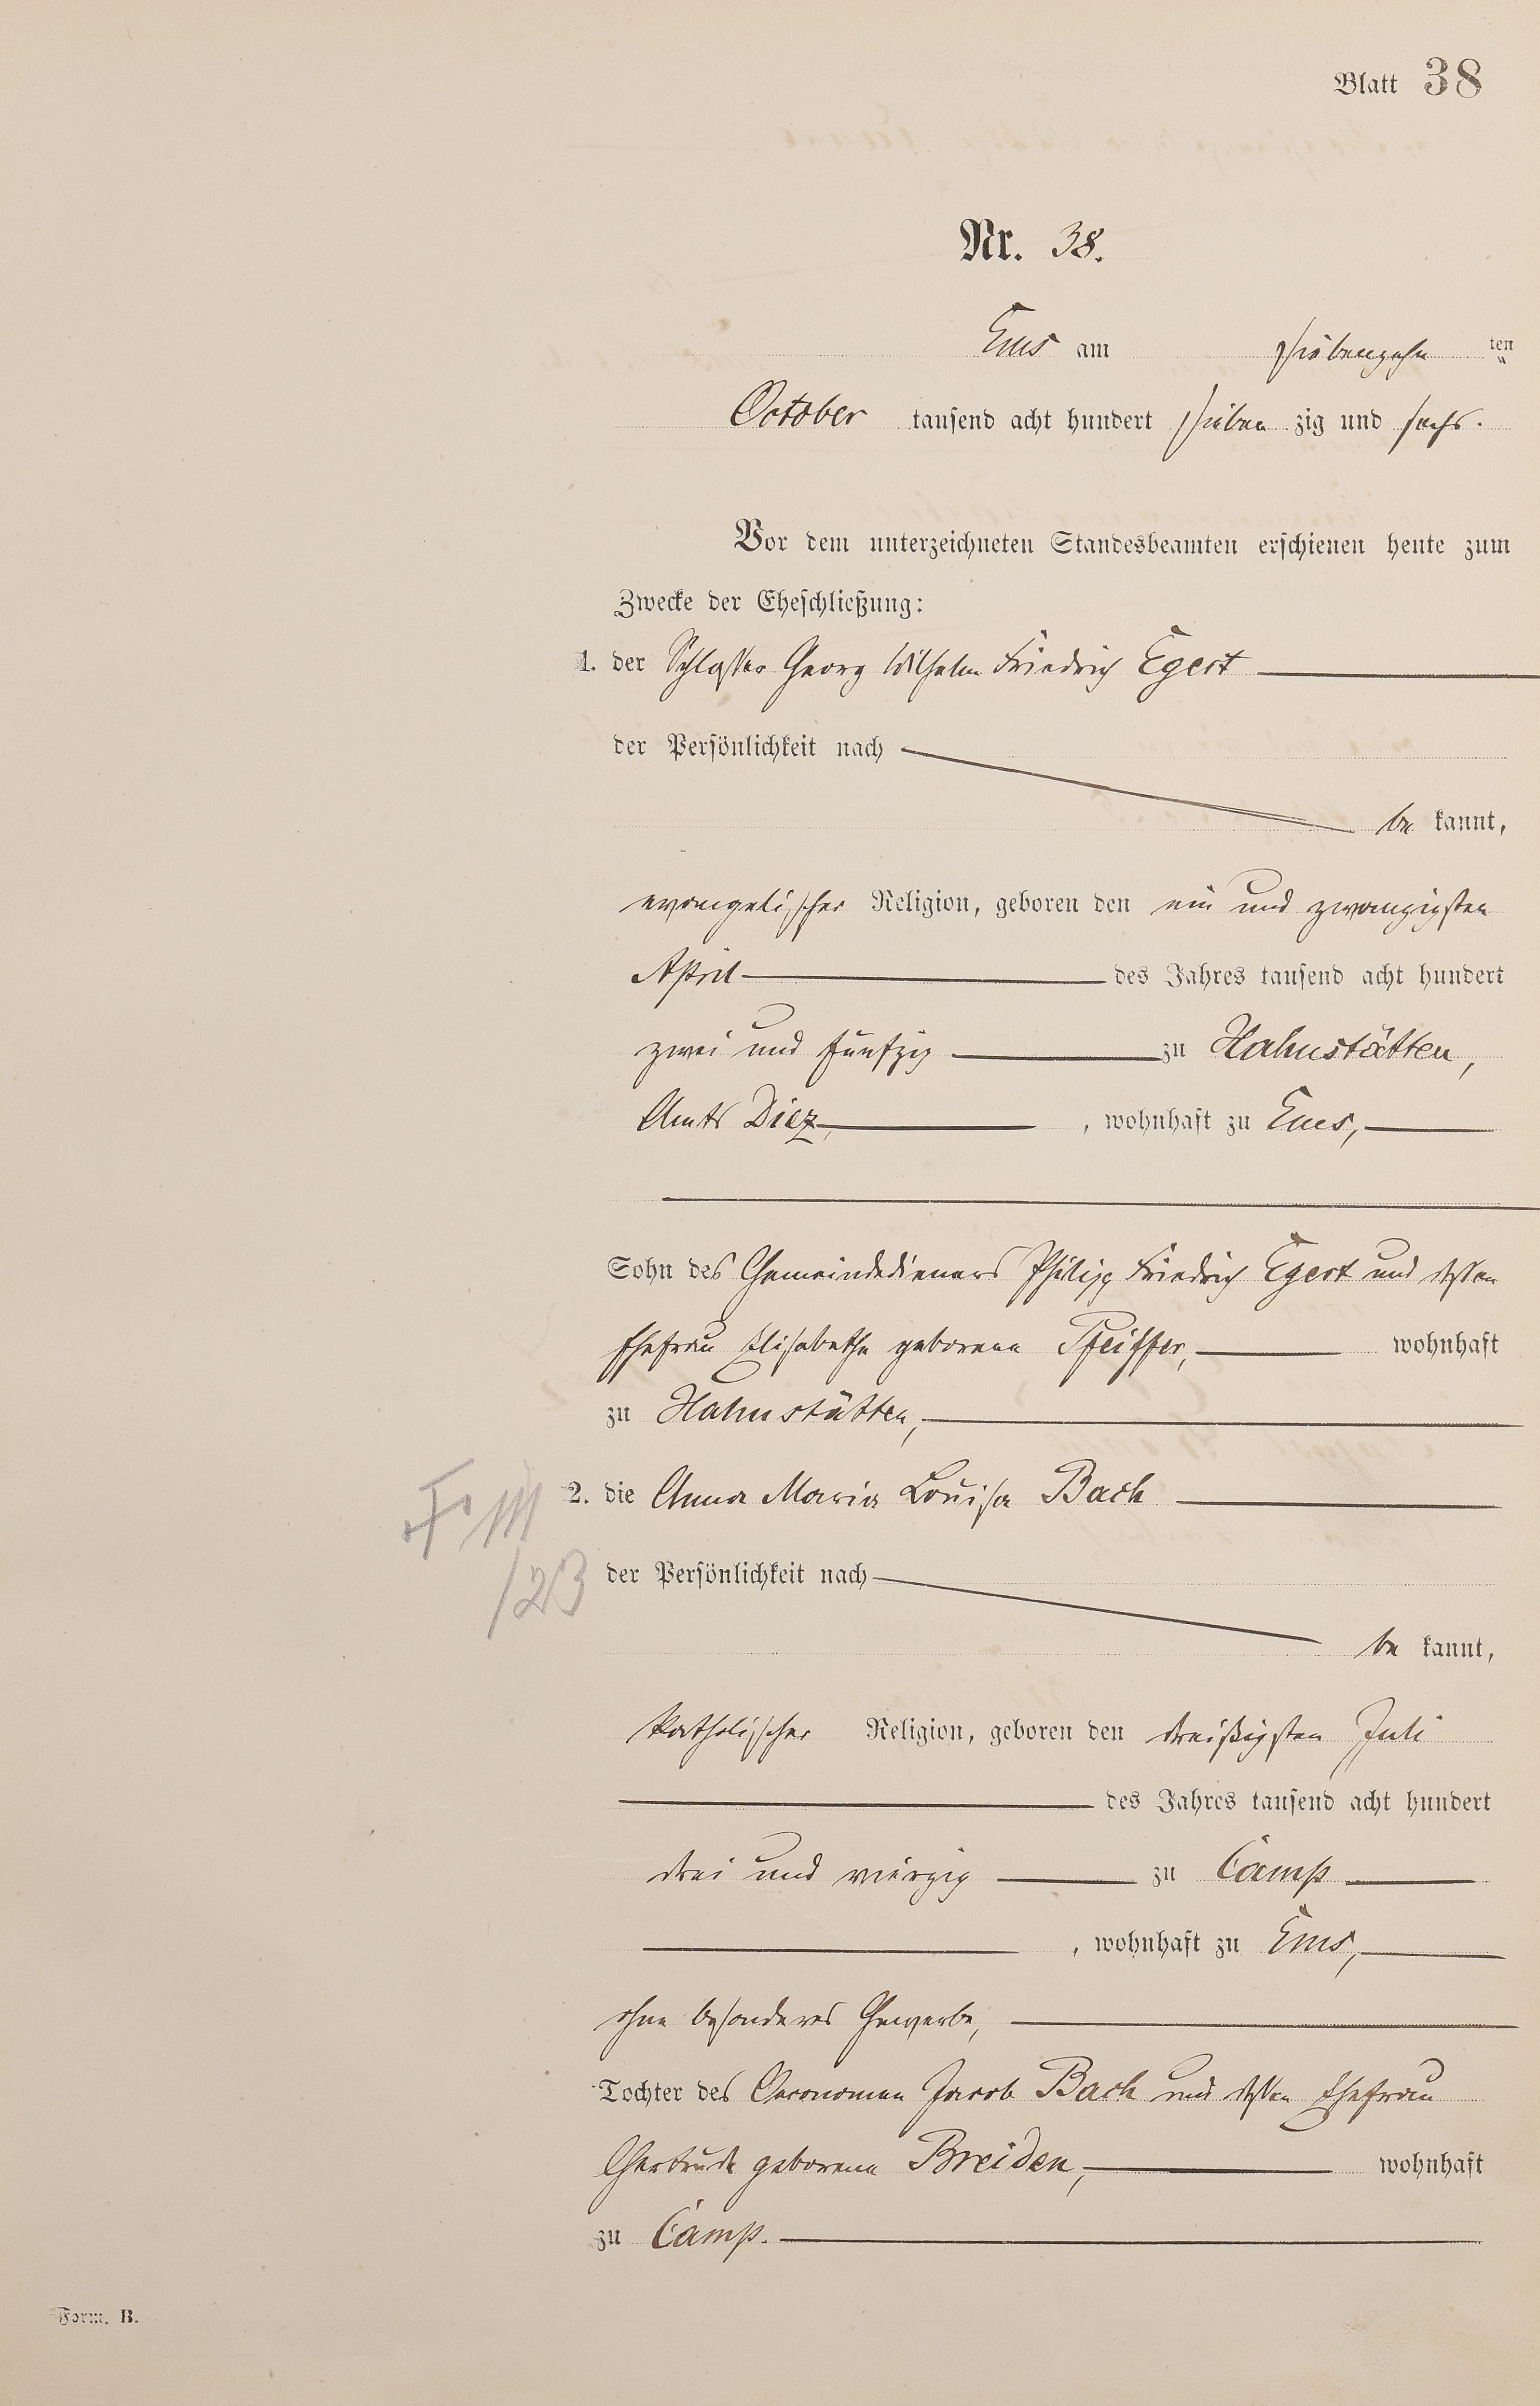 Blatt 38
Nr. 38.
Ems am siebenzehn ten
October tausend acht hundert sieben zig und sechs.
Vor dem unterzeichneten Standesbeamten erschienen heute zum
Zwecke der Eheschließung:
1. der Schlosser Georg Wilhelm Friedrich Egert
der Persönlichkeit nach
be kannt,
evangelischer Religion, geboren den ein und zwanzigsten
April des Jahres tausend acht hundert
zwei und fünfzig zu Hahnstätten,
Amts Diez, , wohnhaft zu Ems,
Sohn des Gemeindedieners Philipp Friedrich Egert und dessen
Ehefrau Elisabethe geborene Pfeiffer, wohnhaft
zu Hahnstätten,
2. die Anna Maria Louise Bach
F III
der Persönlichkeit nach
/23
be kannt,
katholischer Religion, geboren den dreißigsten Juli
des Jahres tausend acht hundert
drei und vierzig zu Camp
, wohnhaft zu Ems,
ohne besonderes Gewerbe,
Tochter des Oeconomen Jacob Bach und dessen Ehefrau
Gertrude geborene Breiden, wohnhaft
zu Camp.
Form. B.